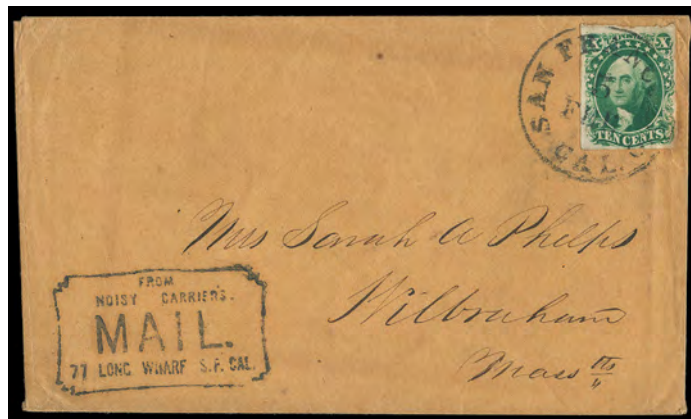 SAN FRANCISCO
FEB
CAL.
X X
TEN CENTS
Mrs Sarah A Phelps
Wilbraham
Mass tts
FROM
NOISY CARRIER'S.
MAIL.
77 LONG WHARF S.F. CAL.